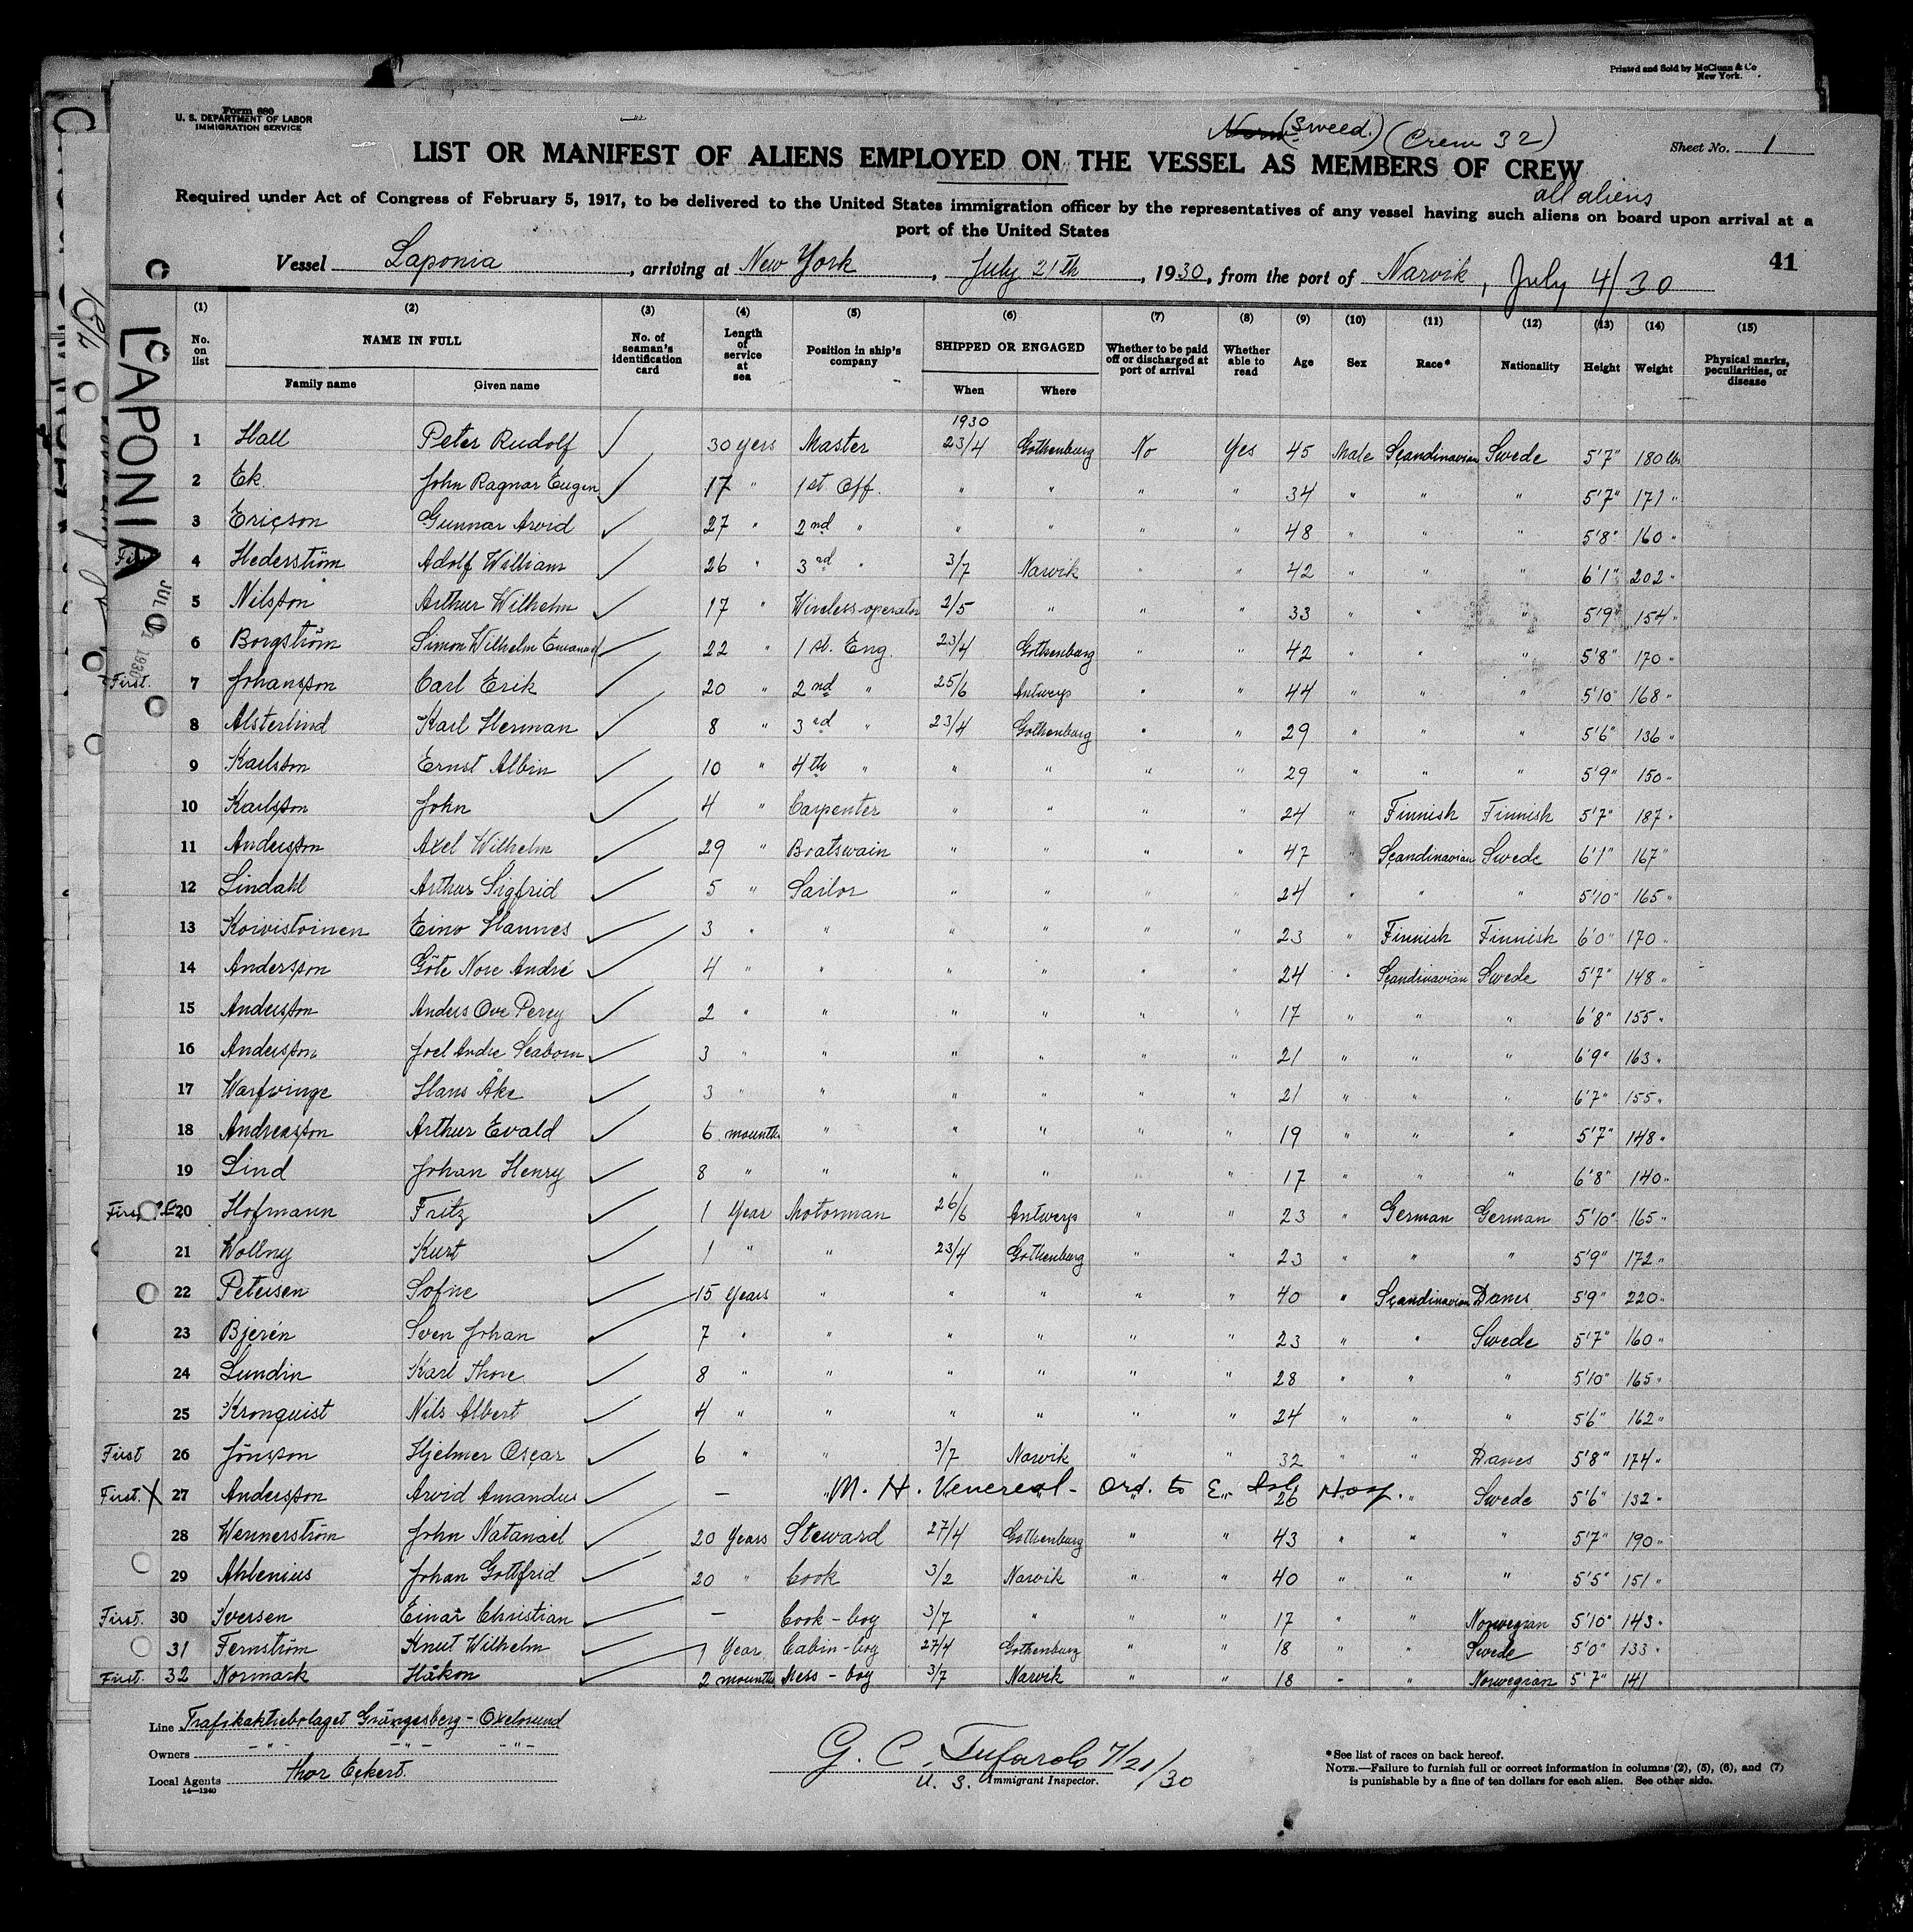 Printed and Sold by McClunn & Co
New York.
Form 680
U. S. DEPARTMENT OF LABOR
IMMIGRATION SERVICE
(Sweed.) (Crew 32)
Sheet No. 1
LIST OR MANIFEST OF ALIENS EMPLOYED ON THE VESSEL AS MEMBERS OF CREW
all aliens
Required under Act of Congress of February 5, 1917, to be delivered to the United States immigration officer by the representatives of any vessel having such aliens on board upon arrival at a
port of the United States
Vessel Laponia, arriving at New York, July 21th, 1930, from the port of Narvik, July 4/30
41
LAPONIA
JUL 21 1930
(1) (2) (3) (4) (5) (6) (7) (8) (9) (10) (11) (12) (13) (14) (15)
No. on list NAME IN FULL Family name Given name No. of seaman's identification card Length of service at sea Position in ship's company SHIPPED OR ENGAGED When Where Whether to be paid off or discharged at port of arrival Whether able to read Age Sex Race* Nationality Height Weight Physical marks, peculiarities, or disease
1930
1 Hall Peter Rudolf ✓ 30 yers Master 23/4 Gothenburg No Yes 45 Male Scandinavian Swede 5'7" 180 lbs
2 Ek John Ragnar Eugen ✓ 17 " 1st Off. " " " " 34 " " " 5'7" 171 "
3 Ericson Gunnar Arvid ✓ 27 " 2nd " " " " " 48 " " " 5'8" 160 "
4 Hederström Adolf William ✓ 26 " 3rd " 3/7 Narvik " " 42 " " " 6'1" 202 "
5 Nilsson Arthur Wilhelm ✓ 17 " Wireless-operator 2/5 " " " 33 " " " 5'9" 154 "
6 Borgström Simon Wilhelm Emanuel ✓ 22 " 1st. Eng. 23/4 Gothenburg " " 42 " " " 5'8" 170 "
First. 7 Johansson Carl Erik ✓ 20 " 2nd " 25/6 Antwerp " " 44 " " " 5'10" 168 "
8 Alsterlind Karl Herman ✓ 8 " 3rd " 23/4 Gothenburg " " 29 " " " 5'6" 136 "
9 Karlsson Ernst Albin ✓ 10 " 4th " " " " " 29 " " " 5'9" 150 "
10 Karlsson John ✓ 4 " Carpenter " " " " 24 " Finnish Finnish 5'7" 187 "
11 Andersson Axel Wilhelm ✓ 29 " Boatswain " " " " 47 " Scandinavian Swede 6'1" 167 "
12 Lindahl Arthur Sigfrid ✓ 5 " Sailor " " " " 24 " " " 5'10" 165 "
13 Koivistoinen Eino Hannes ✓ 3 " " " " " " 23 " Finnish Finnish 6'0" 170 "
14 Andersson Göte Nore André ✓ 4 " " " " " " 24 " Scandinavian Swede 5'7" 148 "
15 Andersson Anders Ove Percy ✓ 2 " " " " " " 17 " " " 6'8" 155 "
16 Andersson Joel Andre Seaborn ✓ 3 " " " " " " 21 " " " 6'9" 163 "
17 Warfvinge Hans Åke ✓ 3 " " " " " " 21 " " " 6'7" 155 "
18 Andreasson Arthur Evald ✓ 6 mounths " " " " " 19 " " " 5'7" 148 "
19 Lind Johan Henry ✓ 8 " " " " " " 17 " " " 6'8" 140 "
First 20 Hofmann Fritz ✓ 1 Year Motorman 26/6 Antwerp " " 23 " German German 5'10" 165 "
21 Wollny Kurt ✓ 1 " " 23/4 Gothenburg " " 23 " " " 5'9" 172 "
22 Petersen Sofne ✓ 15 Years " " " " " 40 " Scandinavian Danes 5'9" 220 "
23 Bjerén Sven Johan ✓ 7 " " " " " " 23 " " Swede 5'7" 160 "
24 Lundin Karl Thore ✓ 8 " " " " " " 28 " " " 5'10" 165 "
25 Kronquist Nils Albert ✓ 4 " " " " " " 24 " " " 5'6" 162 "
First 26 Jönsson Hjelmer Oscar ✓ 6 " " 3/7 Narvik " " 32 " " Danes 5'8" 174 "
First. X 27 Andersson Arvid Amandus ✓ — " M. H. Venereal - Ord. to E. Isl. Hosp. 26 " Swede 5'6" 132 "
28 Wennerström John Natanael ✓ 20 Years Steward 27/4 Gothenburg " " 43 " " " 5'7" 190 "
29 Ahlenius Johan Gottfrid ✓ 20 " Cook 3/2 Narvik " " 40 " " " 5'5" 151 "
First. 30 Iversen Einar Christian ✓ — Cook-boy 3/7 " " " 17 " " Norwegian 5'10" 143 "
31 Fernström Knut Wilhelm ✓ 1 Year Cabin-boy 27/4 Gothenburg " " 18 " " Swede 5'0" 133 "
First. 32 Normark Håkon ✓ 2 mounths Mess-boy 3/7 Narvik " " 18 " " Norwegian 5'7" 141
Line Trafikaktiebolaget Grängesberg-Oxelösund
Owners -"- -"- -"-
Local Agents Thor Eckert.
14—1240
G. C. Tufarolo 7/21/30
U. S. Immigrant Inspector.
*See list of races on back hereof.
NOTE.—Failure to furnish full or correct information in columns (2), (5), (6), and (7)
is punishable by a fine of ten dollars for each alien. See other side.